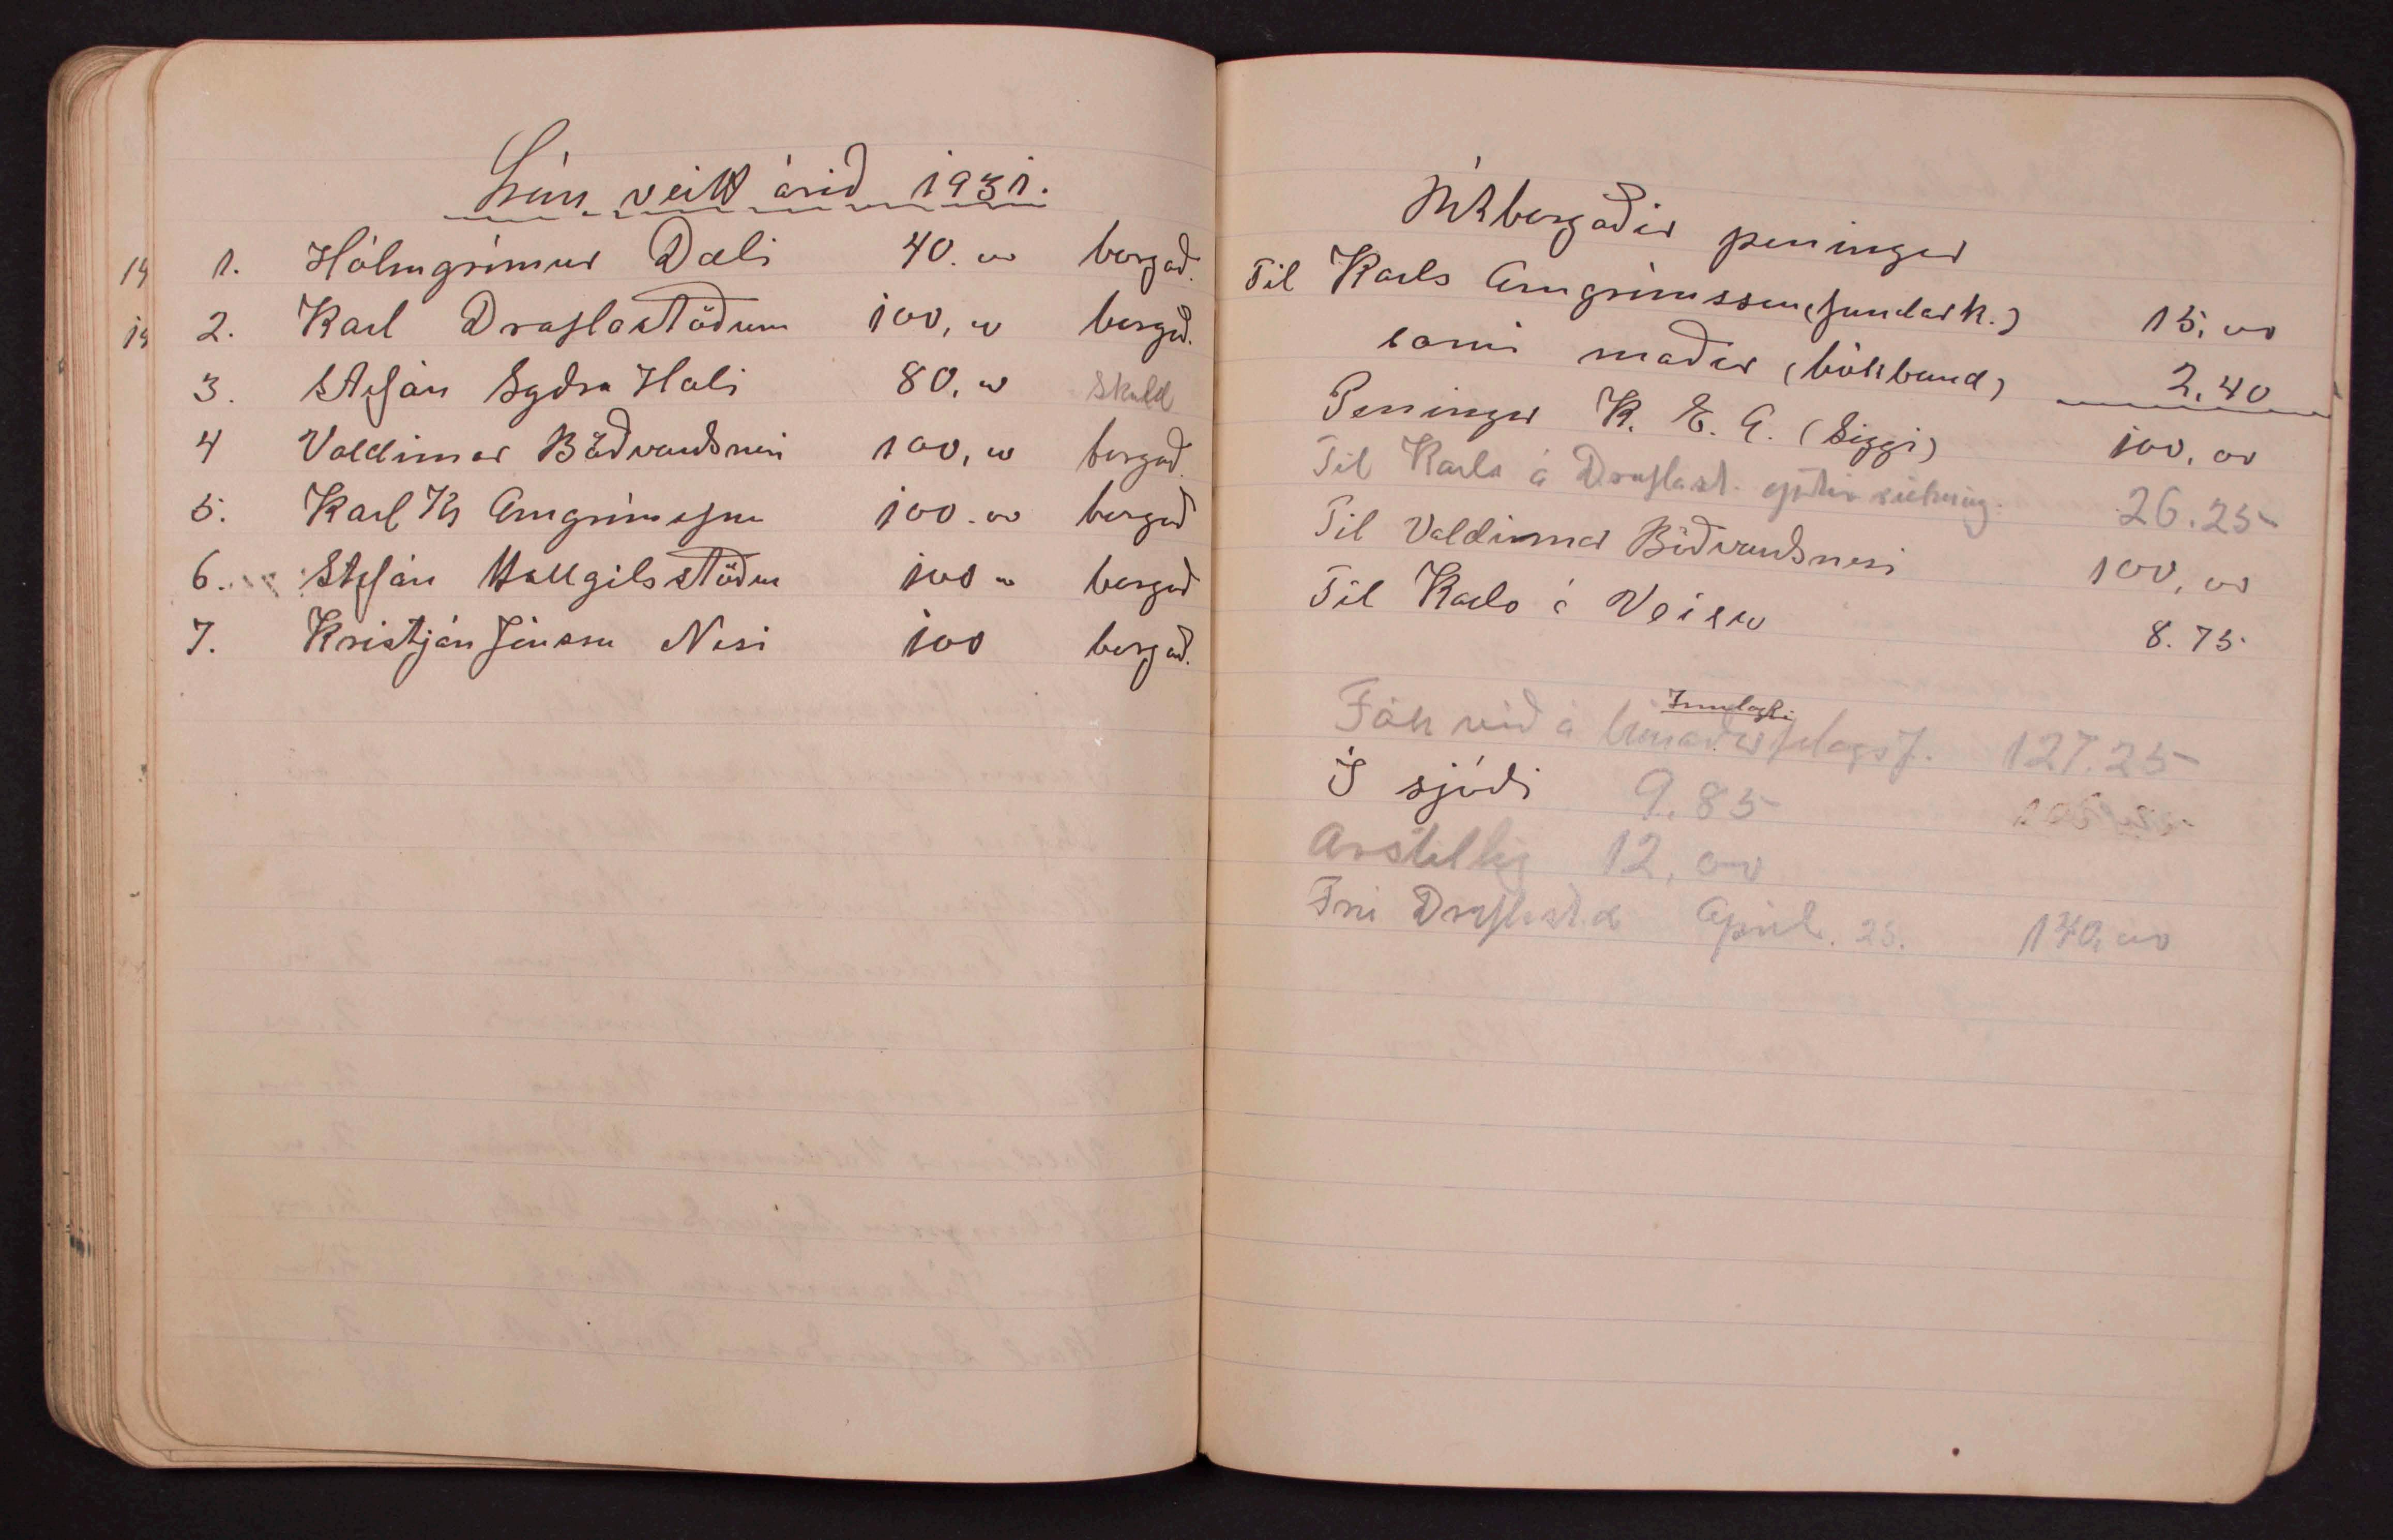 Lán veitt árið 1931.
1. Hólmgrímur Dæli 40.00 borgað.
2. Karl Draflastöðum 100,00 borgað.
3. Stefán Syðra Hóli 80,00 Skuld
4 Valdimar Böðvarsnesi 100,00 borgað.
5. Karl Kr Arngrímsson 100.00 borgað
6. Stefán Hallgilsstöðum 100 00 borgað
7. Kristján Jónsson Nesi 100 borgað.
Útborgaðir peningar
Til Karls Arngrímssonar (fundark.) 15,00
sami maður (bókband) 2,40
Peningar K. E. A. (Siggi) 100,00
Til Karls á Draflast. eptir reikning. 26.25
Til Valdimar Böðvarsnesi 100,00
Til Karls á Veisu 8.75
Innlagt
Fók við á búnaðarfélagsf. 127.25
Í sjóði 9.85
Árstillög 12,00
Frá Draflast. Apríl. 25. 140,00